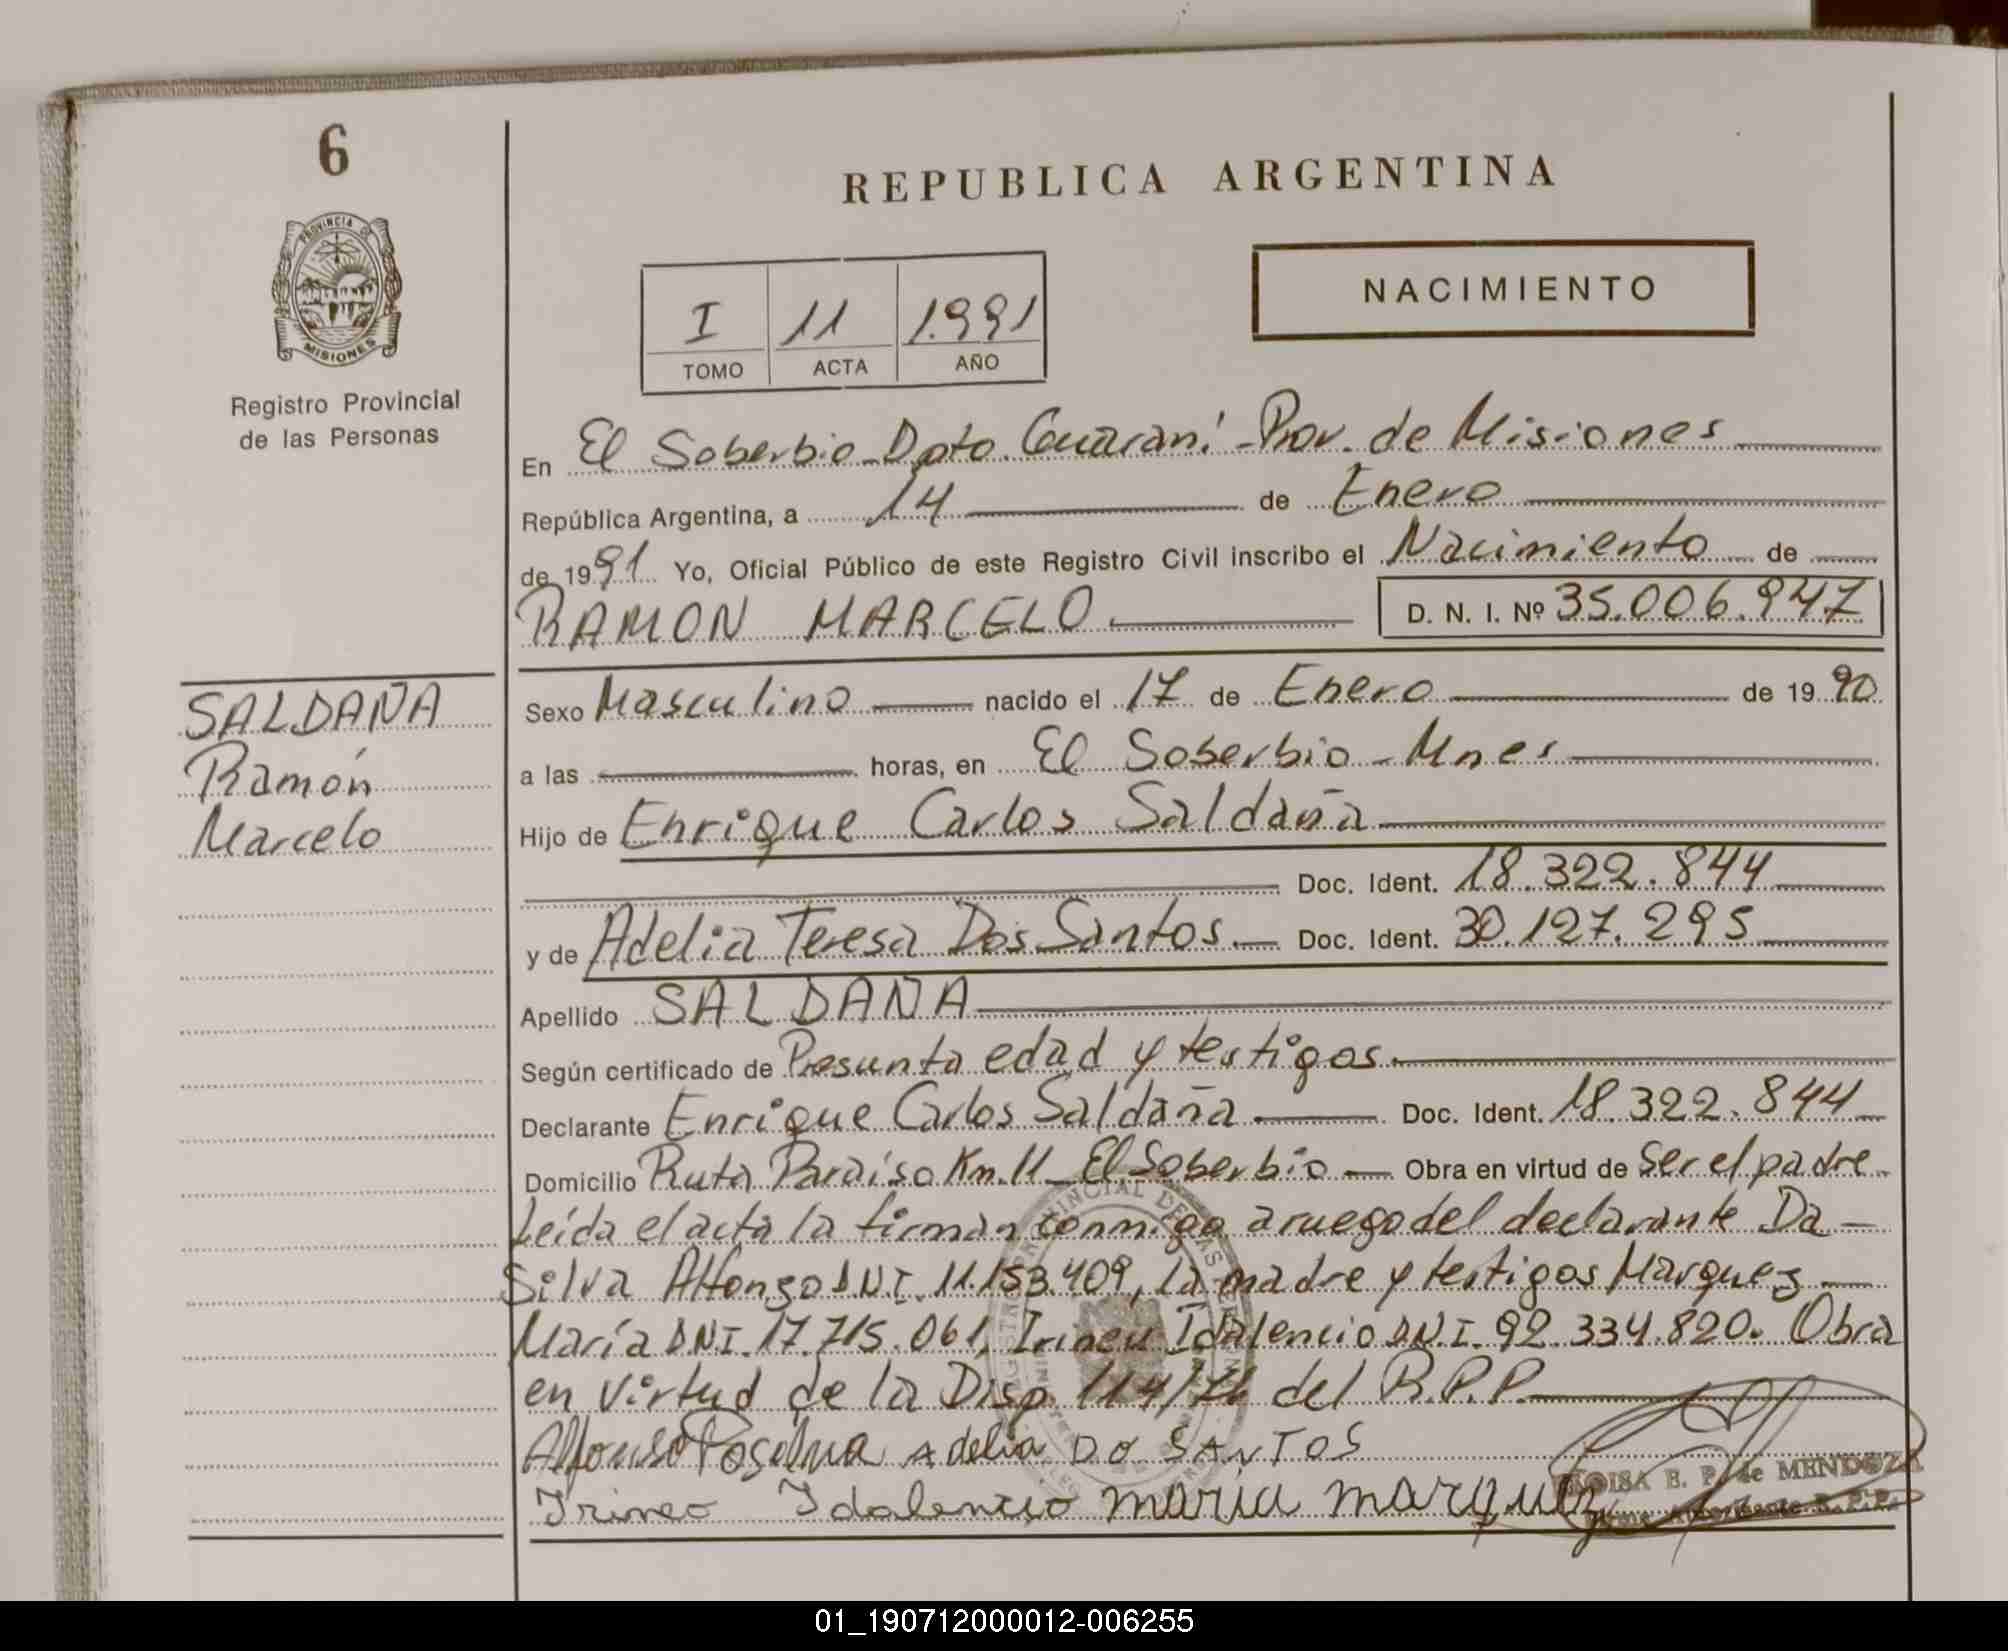 6
REPUBLICA ARGENTINA
PROVINCIA DE
MISIONES
Registro Provincial
de las Personas
NACIMIENTO
I 11 1.991
TOMO ACTA AÑO
En El Soberbio - Dpto. Guaraní - Prov. de Misiones
República Argentina, a 14 de Enero
de 1991 Yo, Oficial Público de este Registro Civil inscribo el Nacimiento de
RAMON MARCELO D. N. I. Nº 35.006.947
SALDAÑA
Ramón
Marcelo
Sexo Masculino nacido el 17 de Enero de 1990
a las horas, en El Soberbio - Mnes
Hijo de Enrique Carlos Saldaña
Doc. Ident. 18.322.844
y de Adelia Teresa Dos Santos. Doc. Ident. 30.127.295
Apellido SALDAÑA
Según certificado de Presunta edad y testigos.
Declarante Enrique Carlos Saldaña Doc. Ident. 18.322.844
Domicilio Ruta Paraíso Km. 11 - El Soberbio Obra en virtud de Ser el padre
Leída el acta la firman conmigo a ruego del declarante Da
Silva Alfonzo DNI. 11.153.409, la madre y testigos Marquez
María DNI. 17.715.061, Irineu Idalencio DNI. 92.334.820. Obra
en virtud de la Disp. 114/76 del R.P.P.
Adelia DO SANTOS
Irineo Idalencio maria marquez
E. P. de MENDOZA
01_190712000012-006255